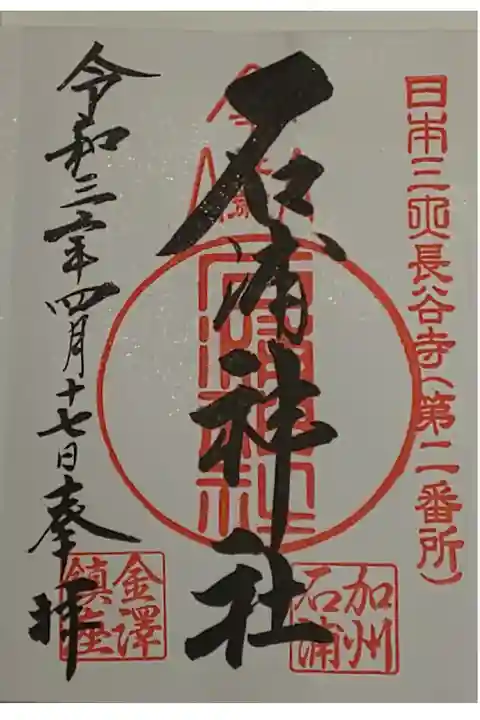 日本三大長谷寺(第二番所)
石浦神社
加州
石浦
令和三年四月十七日奉拝
金澤
鎮座